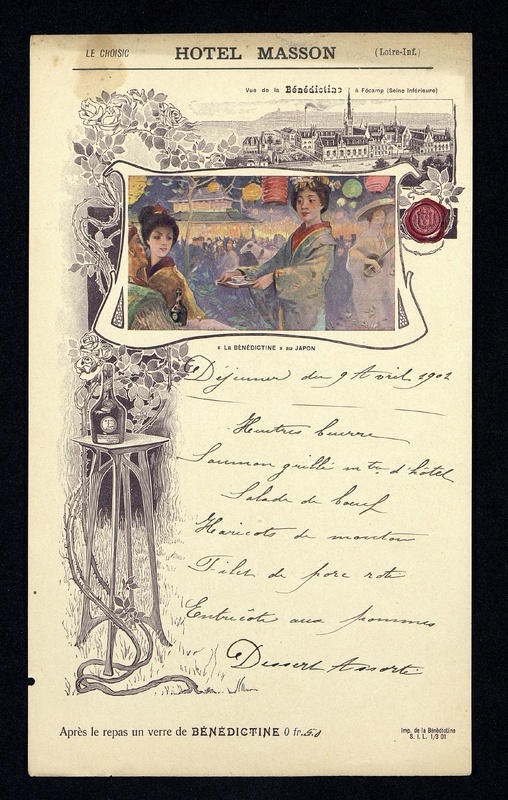 LE CROISIC HOTEL MASSON (Loire-Inf.)
Vue de la Bénédictine à Fécamp (Seine Inférieure)
« La BÉNÉDICTINE » au JAPON
Déjeuner du 9 Avril 1902
Huitres beurre
Saumon grillé m tre d'hôtel
Salade de boeuf
Haricots de mouton
Filet de porc roti
Entrecôte aux pommes
Dessert Assorti
Après le repas un verre de BÉNÉDICTINE 0 fr. 50
Imp. de la Bénédictine
S. I. L. 1/3 01